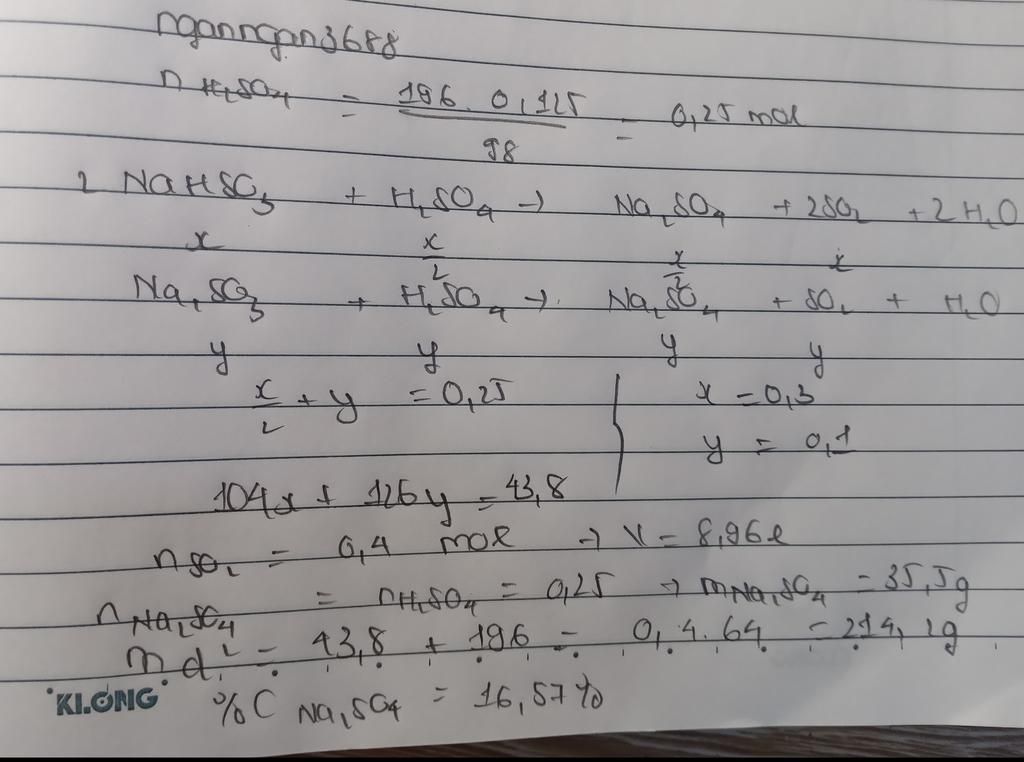 nganngan3688
n H₂SO₄ = 196 . 0,125 / 98 = 0,25 mol
2 NaHSO₃ + H₂SO₄ → Na₂SO₄ + 2SO₂ + 2H₂O
x x/2 x/2 x
Na₂SO₃ + H₂SO₄ → Na₂SO₄ + SO₂ + H₂O
y y y y
x/2 + y = 0,25 x = 0,3
y = 0,1
104x + 126y = 43,8
n SO₂ = 0,4 mol → V = 8,96 l
n Na₂SO₄ = n H₂SO₄ = 0,25 → m Na₂SO₄ = 35,5g
m d² = 43,8 + 196 - 0,4.64 = 214,2g
KLONG %C Na₂SO₄ = 16,57%